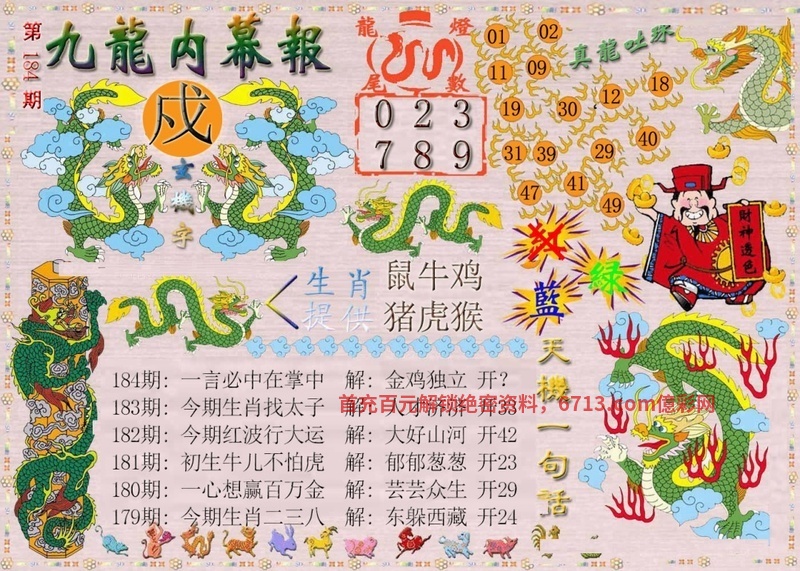 第184期
九龍内幕報
戍
玄機字
龍燈
尾數
0 2 3
7 8 9
真龍吐珠
01 02
11 09
19 30 12 18
31 39 29 40
47 41 49
財神透色
藍 綠
生肖提供
鼠牛鸡
猪虎猴
184期: 一言必中在掌中 解: 金鸡独立 开?
183期: 今期生肖找太子 解: 开33
首充百元解锁绝密资料，6713.com億彩网
182期: 今期红波行大运 解: 大好山河 开42
181期: 初生牛儿不怕虎 解: 郁郁葱葱 开23
180期: 一心想赢百万金 解: 芸芸众生 开29
179期: 今期生肖二三八 解: 东躲西藏 开24
天機一句話